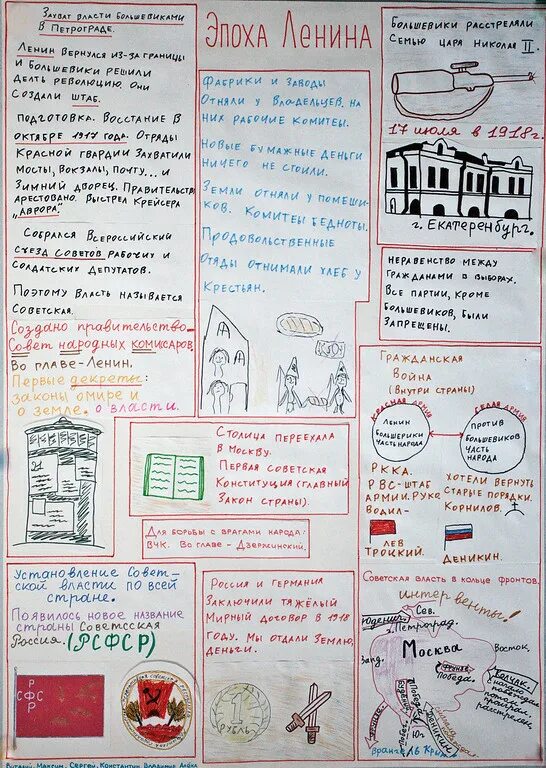 Захват власти большевиками
в Петрограде.
Ленин вернулся из-за границы
и большевики решили
делть революцию. Они
создали штаб.
Подготовка. Восстание в
октябре 1917 года. Отряды
Красной гвардии захватили
мосты, вокзалы, почту... и
Зимний дворец. Правительство
арестовано. Выстрел крейсера
„Аврора".
Собрался Всероссийский
съезд Советов рабочих и
солдатских депутатов.
Поэтому власть называется
Советская.
Создано правительство-
Совет народных комисаров.
Во главе-Ленин.
Первые декреты:
законы о мире и
о земле. о власти.
21
Установление Совет-
ской власти по всей
стране.
Появилось новое название
страны Советсская
Россия. (РСФСР)
Р
СФС
Р
Эпоха Ленина
Фабрики и заводы
отняли у владельцев. на
них рабочие комитеы.
Новые бумажные деньги
ничего не стоили.
Земли отняли у помещи-
ков. Комитеы бедноты.
Продовольственные
отяды отнимали хлеб у
крестьян.
Столица переехала
в Москву.
Первая советская
Конституция (главный
закон страны).
Для борьбы с врагами народа:
ВЧК. Во главе - Дзержинский.
Россия и Германия
заключили тяжёлый
мирный договор в 1918
году. Мы отдали землю,
деньги.
1
рубль
Большевики расстреляли
семью царя Николая II.
17 июля в 1918г.
г. Екатеренбург.
Неравенство между
гражданами в выборах.
Все партии, кроме
большевиков, были
запрещены.
Гражданская
война
(внутри страны)
Красная армия
Ленин
большевики
часть народа
Белая армия
против
большевиков
часть
народа
РККА.
РВС-штаб
армии. Руко
водил-
Лев
Троцкий.
Хотели вернуть
старые порядки.
Корнилов.
Деникин.
Советская власть в кольце фронтов.
интервенты!
Сев.
Юденич.
г. Петроград.
Москва
Восток.
Запд.
Фрунзе
Победа.
Колчак
Победа
Юг
Деникин
Врангель Крым
Виталий, Максим, Сергей, Константин, Владимир